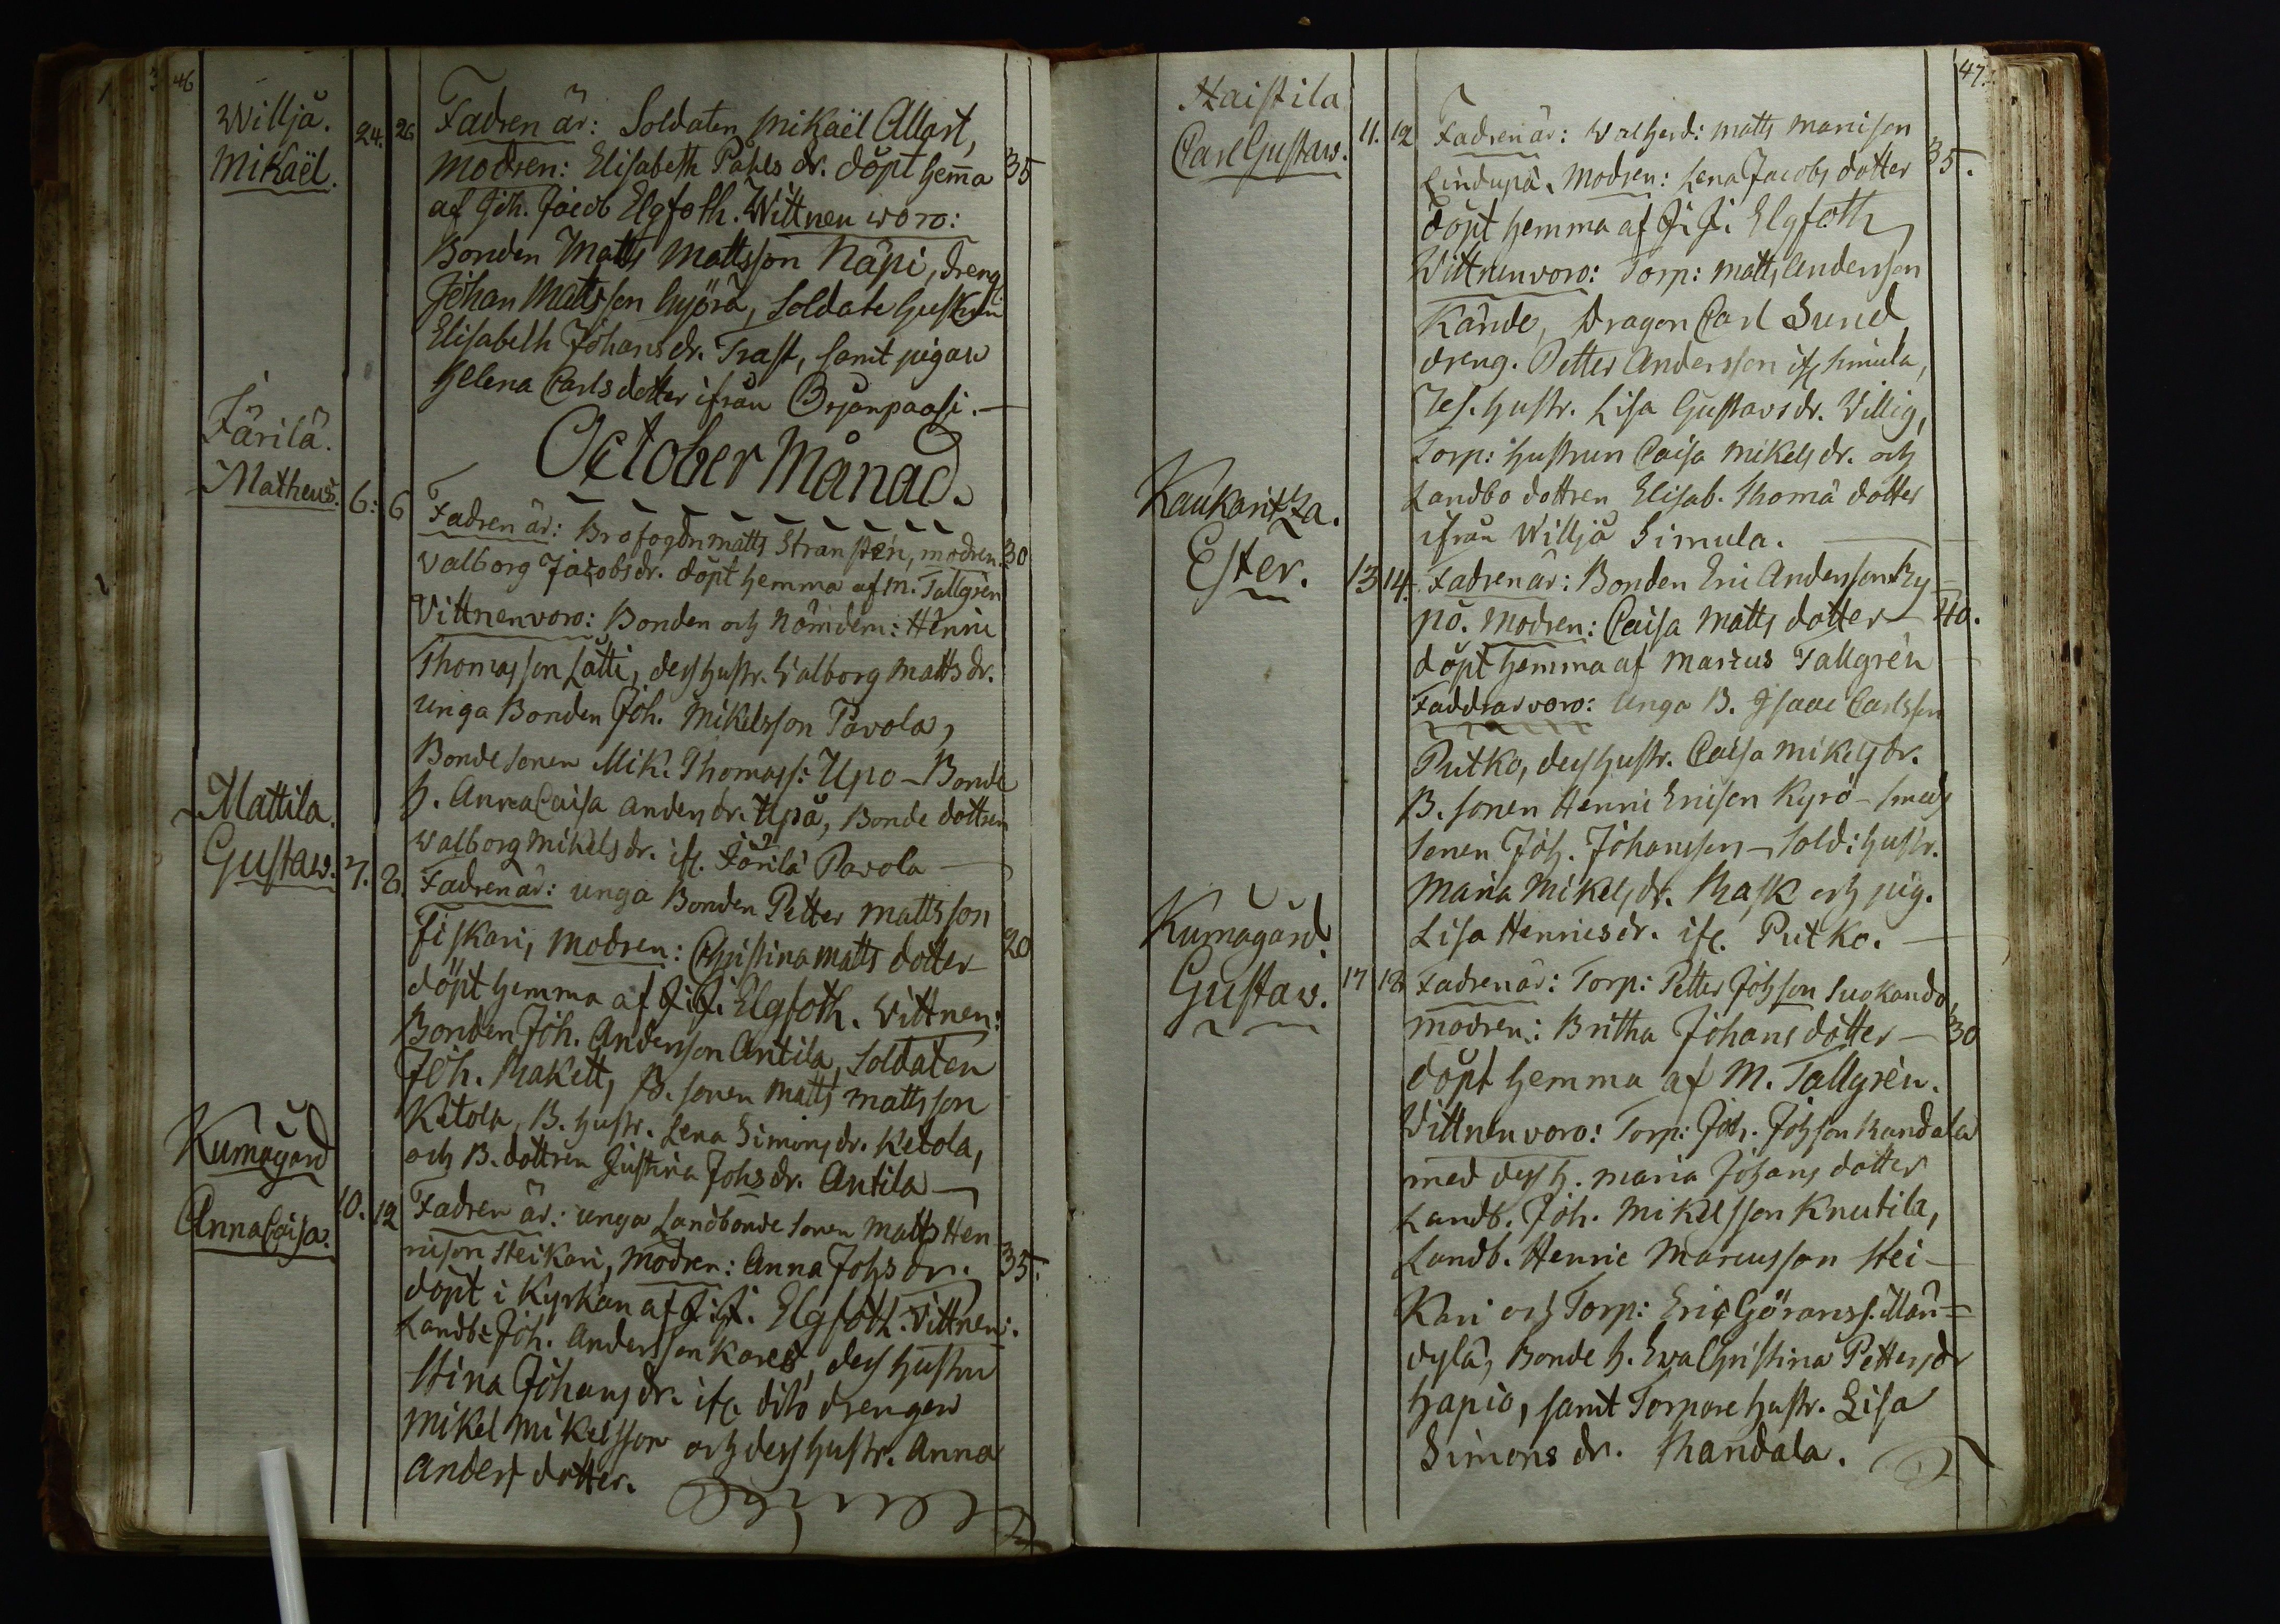 46
Willjä.
Mikaël.
24. 26
Fadren är: Soldaten Mikaël Allart,
modren: Elisabeth Påhls dr. döpt hema 35
af Joh. Jacob Elgfoth. Wittnen woro:
Bonden Matts Mattsson Näpi, dreng.
Johan Matsson Györä, Soldate hustrun
Elisabeth Johans dr. Trast, samt pigan
Helena Carls dotter ifrån Örjanpaasi.
October Månad.
Färilä.
Matheus.
6. 6
Fadren är: Brofogdn matts Stransten, modren. 30
Valborg Jacobsdr. döpt hemma af M. Tallgrèn
Vittnen voro: Bonden och Nämdem: Henric
Thomasson Lätti, dess hustr. Valborg Mattsdr.
unga Bonden Joh. Mikelsson Pavola,
Bondesonen Mik. Thomass: Upo - Bonde
h. Anna Caisa anders dr. Upå, Bonde dottren
walborg Mikels dr. ifr. Färilä Pavola
Mattila.
Gustaw.
7. 8.
Fadren är: unga Bonden Petter mattsson
Fiskari, modren: Christina matts dotter 20
döpt hemma af J. J. Elgfoth. Vittnen:
Bonden Joh. Andersson Antila, Soldaten
Joh. Rakett, B. sonen Matts mattsson
Kitola, B. hustr. Lena Simons dr. Ketola,
och B. dottren Justina Johs dr. Antila
Kumogård
Anna Caisa.
10. 12
Fadren är: unga Landbonde sonen Matts Hen
rison Heikari, Modren: Anna Johs dr. 35.
döpt i Kyrkan af J. J. Elgfoth. Vittnen:
Landb: Joh. Andersson Kares, dess hustru
Stina Johans dr. ifr. dito drengen
Mikel Mikelsson och dess hustr. Anna
anders dotter.
47.
Haistila
Carl Gustaw.
11. 12
Fadren är: matts manison
Lindupä. Modren: Lena Jacobs dotter 35.
döpt hemma af J. J. Elgfoth
Wittnen voro: Torp: matts Andersson
Kånde, Dragon Carl Sund
dreng. Petter Andersson ifr Simula,
Res. hustr. Lisa Gustavs dr. Villig,
Torp: hustrun Caisa Mikels dr. och
Landbo dottren Elisab. Thomä dotter
ifrån Willjä Simula.
Kaukaritza.
Ester.
13 14.
Fadren är: Bonden Eric Andersson Ky-
rö. modren: Caisa Matts dotter 40.
döpt hemma af Marcus Tallgrèn
Faddrar voro: unga B. Isaac Carlsson
Putko, dess hustr. Caisa Mikels dr.
B. sonen Henric Ericson Kyrö - smeds
sonen Joh. Johansson - Sold: hustr.
Maria Mikels dr. Rask och pig.
Lisa Henricsdr. ifr. Putko.
Kumogård.
Gustaw.
17 18
Fadren är: Torp: Petter Johson Suokando,
modren: Britha Johans dotter - 30
döpt hemma af M. Tallgrèn.
Vittnen voro: Torp: Joh. Johson Randala
med dess h. maria Johans dotter
Landb. Joh. Mikelsson Knutila,
Landb. Henric Marcusson Hei-
Kari och Torp: Eric Göranss. Män=
dylä, Bonde h. Eva Christina Petters dr
Hapio, samt Torpare hustr. Lisa
Simons dr. Randala.